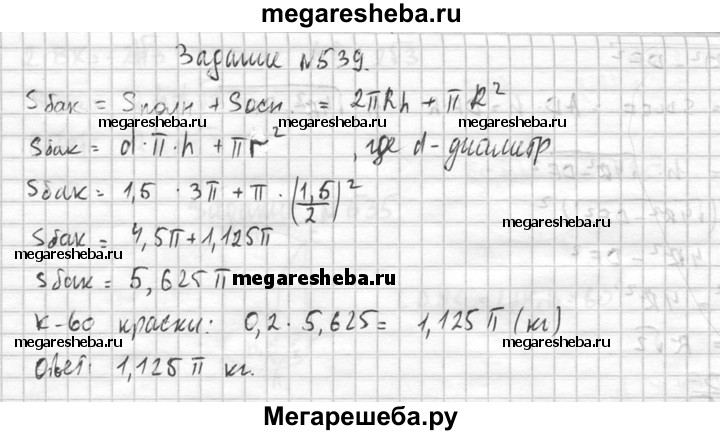 megaresheba.ru
Задание №539.
Sбак = Sполн + Sосн = 2πRh + πR²
megaresheba.ru megaresheba.ru megaresheba.ru
Sбак = d·π·h + πr², где d - диаметр
megaresheba.ru megaresheba.ru megaresheba.ru
Sбак = 1,5 · 3π + π · (1,5/2)²
megaresheba.ru
Sбак = 4,5π + 1,125π
Sбак = 5,625π
megaresheba.ru
к-во краски: 0,2 · 5,625 = 1,125π (кг)
megaresheba.ru megaresheba.ru megaresheba.ru
Ответ: 1,125π кг.
Мегарешеба.ру